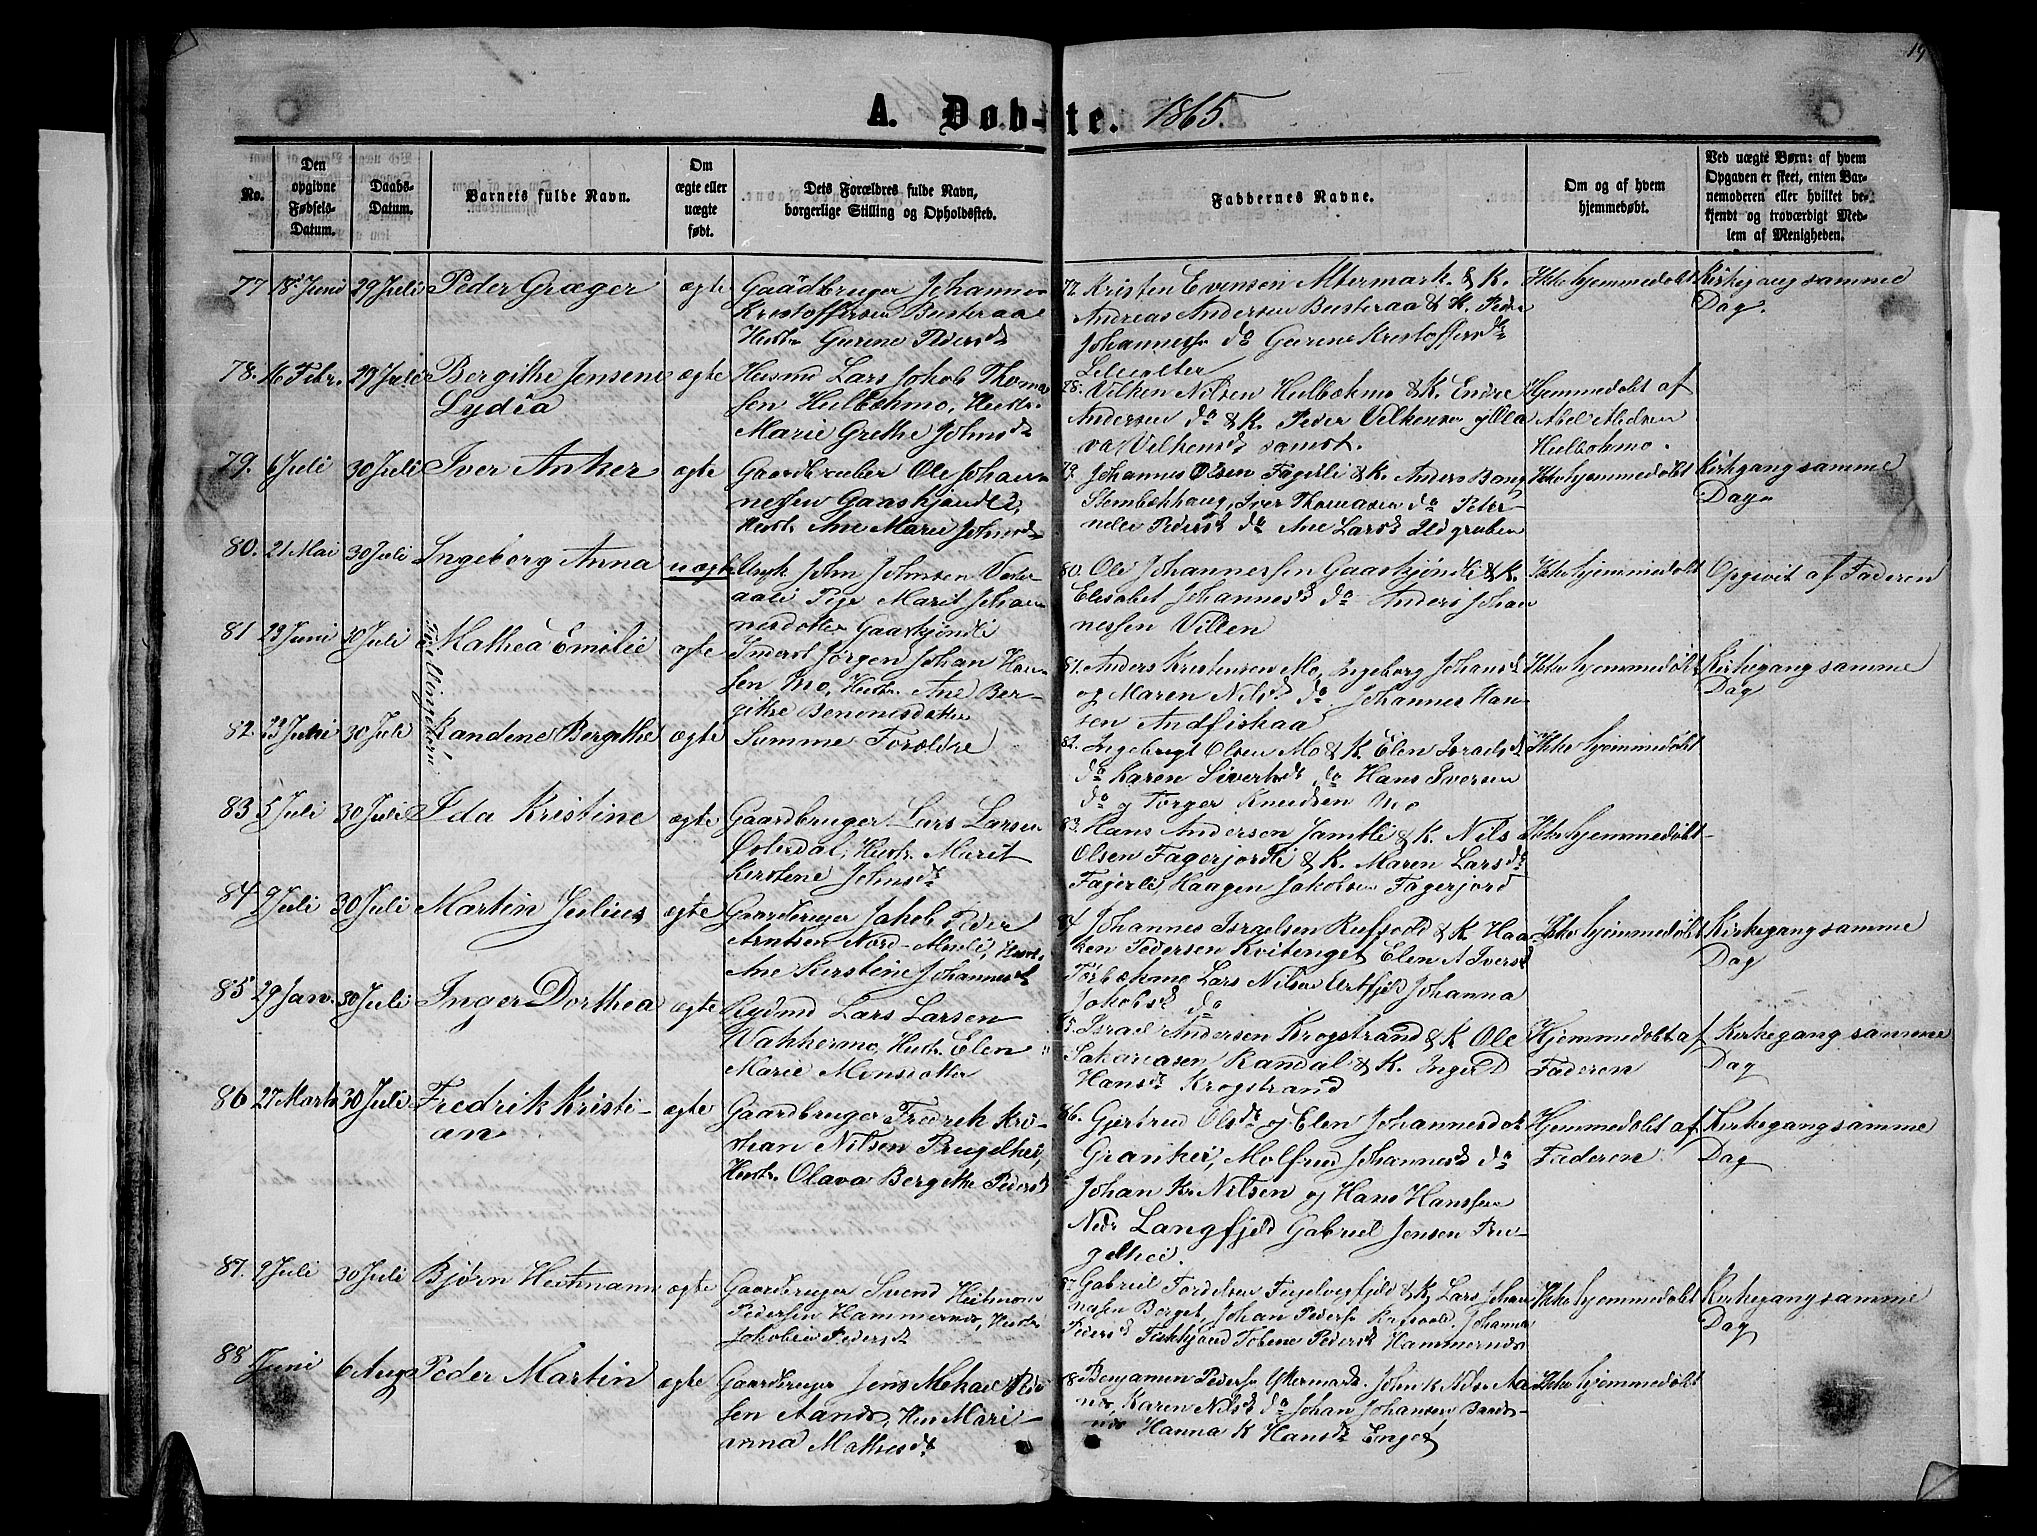 19
A. Døb-te. 1865.
No.
Den opgivne Fødsels-Datum.
Daabs-Datum.
Barnets fulde Navn.
Om ægte eller uægte født.
Dets Forældres fulde Navn, borgerlige Stilling og Opholdssted.
Faddernes Navne.
Om og af hvem hjemmedøbt.
Ved uægte Børn: af hvem
Opgaven er skeet, enten Bar-
nemoderen eller hvilket be-
kjendt og troværdigt Med-
lem af Menigheden.
77 18 Juni 29 Juli Peder Græger ægte Gaardbruger Johannes
Kristoffersen Busteraa
Hustr Gurine Pedersd
Kristen Evensen Altermark & K.
Andreas Andersen Busteraa & K. Peder
Johanness do Gurine Kristoffersd
Ikke hjemmedøbt Kirkegang samme
Dag.
78. 16 Febr. 29 Juli Bergitte Jensine
Lydia
ægte Husmd Lars Jakob Thoma
sen Hulbækmo, Hustr.
Marie Grethe Johnsd
78. Vilken Nilsen Hulbækmo & K. Endre
Andersen do & K. Peder Vilkensen og Ola
va Vilkensd samst.
Hjemmedøbt af
Abel
Hulbækmo.
79. 6 Juli 30 Juli Iver Anker ægte Ole Johan
nessen Gaaskjønli,
Hustr. Ane Marie Johnsd
79. Johannes Olsen Fagerli & K. Anders Bang
Stenbækhaug, Iver Thomasen do Peter-
nelle Pedersd do Ane Larsd Ildgruben
Ikke hjemmedøbt Kirkegang samme
Dag
80. 21 Mai 30 Juli Ingeborg Anna uægte Ungk John Johnsen Vester-
aali Pige Marit Johan
nesdatter Gaaskjønli
80. Ole Johannessen Gaaskjønli & K.
Elisabet Johannesd do Anders Johan
nessen Villen
Ikke hjemmedøbt Opgivet af Faderen
Tvillingebørn
81 23 Juni 30 Juli Mathea Emilie ægte Inderst Jørgen Johan Han
sen Mo, Hustr. Ane Ber-
gitte Bennnesdatter
81. Anders Kristensen Mo, Ingeborg Johansd
og Maren Nilsd do Johannes Han
sen Andfiskaa
Ikke hjemmedøbt Kirkegang samme
Dag
82. 23 Juni 30 Juli Randine Bergithe ægte Samme Forældre
82. Ingebrigt Olsen Mo & K. Elen Israelsd
do Karen Sivertsd do Hans Iversen
do og Torger Knudsen Mo
Ikke hjemmedøbt
83 5 Juli 30 Juli Ida Kristine ægte Gaardbruger Lars Larsen
Østerdal, Hustr. Marit
Kerstine Johnsd
83. Hans Andersen Jamtli & K. Nils
Olsen Fagerjordli & K. Maren Larsd
Fagerli Haagen Jakobsen Fagerjord
Ikke hjemmedøbt
84 9 Juli 30 Juli Martin Julius ægte Gaardbruger Jakob Peder
Arntsen Nord- Hustr.
Ane Kerstine Johannesd
84 Johannes Israelsen Rufsvold & K. Haa
ken Pedersen Kvitenget Elen A Iversd
Torbækmo Lars Nilsen Urtfjeld Johanna
Jakobsd do
Ikke hjemmedøbt Kirkegang samme
Dag
85 29 Jan. 30 Juli Inger Dorthea ægte Rydmd Lars Larsen
Vakkermo, Hustr. Elen
Marie Monsdatter
5. Israel Andersen Krogstrand & K Ole
Sakariasen Randal & K. Inger D
Hansd Krogstrand
Hjemmedøbt af
Faderen
Kirkegang samme
Dag
86 27 Marts 30 Juli Fredrik Kristi-
an
ægte Gaardbruger Fredrik Kri-
stian Nilsen Brugelhei,
Hustr. Olava Bergitte Pedersd
86. Gjertrud Olsd og Elen Johannesdat
Granhei, Molfrid Johannesd do
Johan Kr Nilsen og Hans Hanssen
Nedr Langfjeld Gabriel Jensen Bru-
gelhei.
Hjemmedøbt af
Faderen
Kirkegang samme
Dag
87. 9 Juli 30 Juli Bjørn Heitmann ægte Gaardbruger Svend Heitman
Pedersen Hammernæs, Hustr
Jakobine Pedersd
87. Gabriel & K Lars Johan
nesen Borget, Johan Peders Rufsvold, Johanna
Pedersd Tobine Pedersd Hammernæs
Ikke hjemmedøbt Kirkegang samme
Dag
88 Juni 6 Aug Peder Martin ægte Gaardbruger Jens Mikael Peder
sen Aanæs, Hus Mari-
anna Mathisd
8 Benjamin Peders Ytermark. John K Nils Aa
næs, Karen Nilsd do Johan Johansen Bands-
næs Hanna K Hansd Enget
Ikke hjemmedøbt